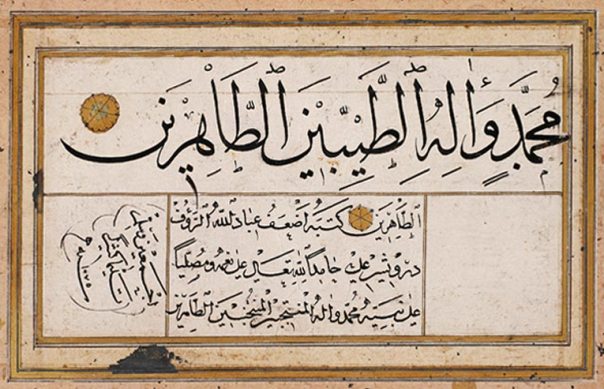 مُحَمَّدٍ وَاٰلِهِ الطَّيِّبِيْنَ الطَّاهِرِيْنَ
الطاهرين كتبه اضعف عباد الله الرؤف
درويش علي حامداً لله تعالى على نعمه ومصلياً
على نبيه محمد واله المنتخبين الطاهرين